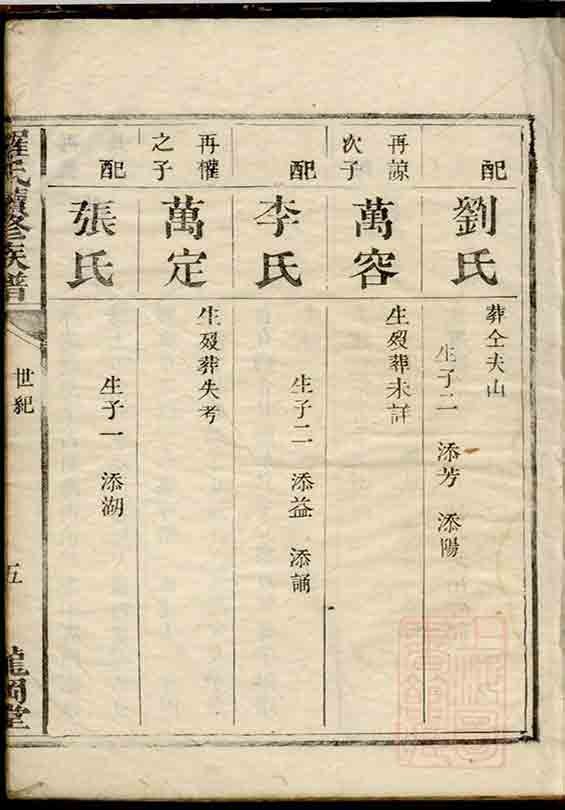 配
劉氏
葬仝夫山
生子二 添芳 添陽
再諒
次子
萬容
生歿葬未詳
配
李氏
生子二 添益 添誦
再權
之子
萬定
生歿葬失考
配
張氏
生子一 添湖
羅氏續修族譜
世紀
五
龍岡堂